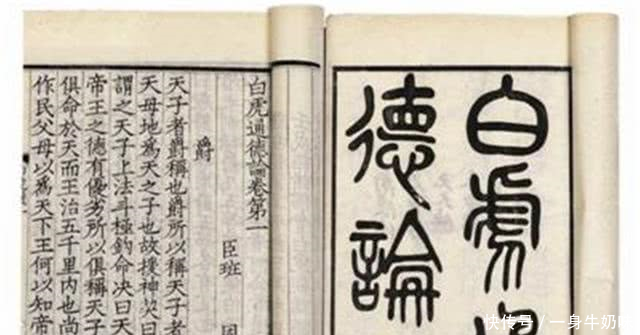 白虎
德論
白虎通德論卷第一
臣班
爵
天子者爵稱也爵所以稱天子者
天母地爲天之子也故援神契曰
謂之天子上法斗極鈎命决曰天
帝王之德有優劣所以俱稱天子
俱命於天而王治五千里内也尚
作民父母以爲天下王何以知帝
快传号/一身牛奶